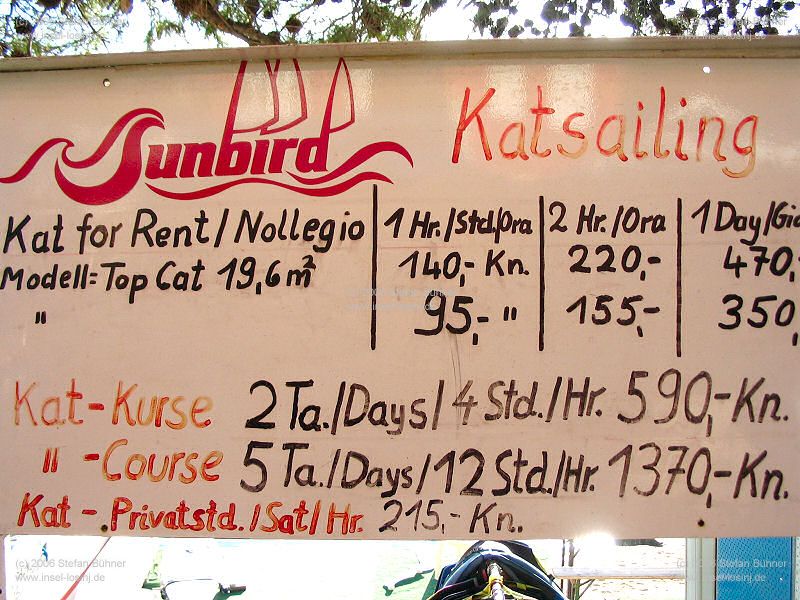 Sunbird Katsailing
Kat for Rent/Nollegio 1 Hr./Std./Ora 2 Hr./Ora 1 Day/Gio
Modell=Top Cat 19,6 m² 140,- Kn. 220,- 470,-
" 95,- " 155,- 350,
Kat-Kurse 2 Ta./Days/4 Std./Hr. 590,-Kn.
" -Course 5 Ta./Days/12 Std./Hr. 1370,-Kn.
Kat-Privatstd./Sat/Hr. 215,- Kn.
(c) 2006 Stefan Bühner
www.insel-losinj.de
(c) 2006 Stefan Bühner
www.insel-losinj.de